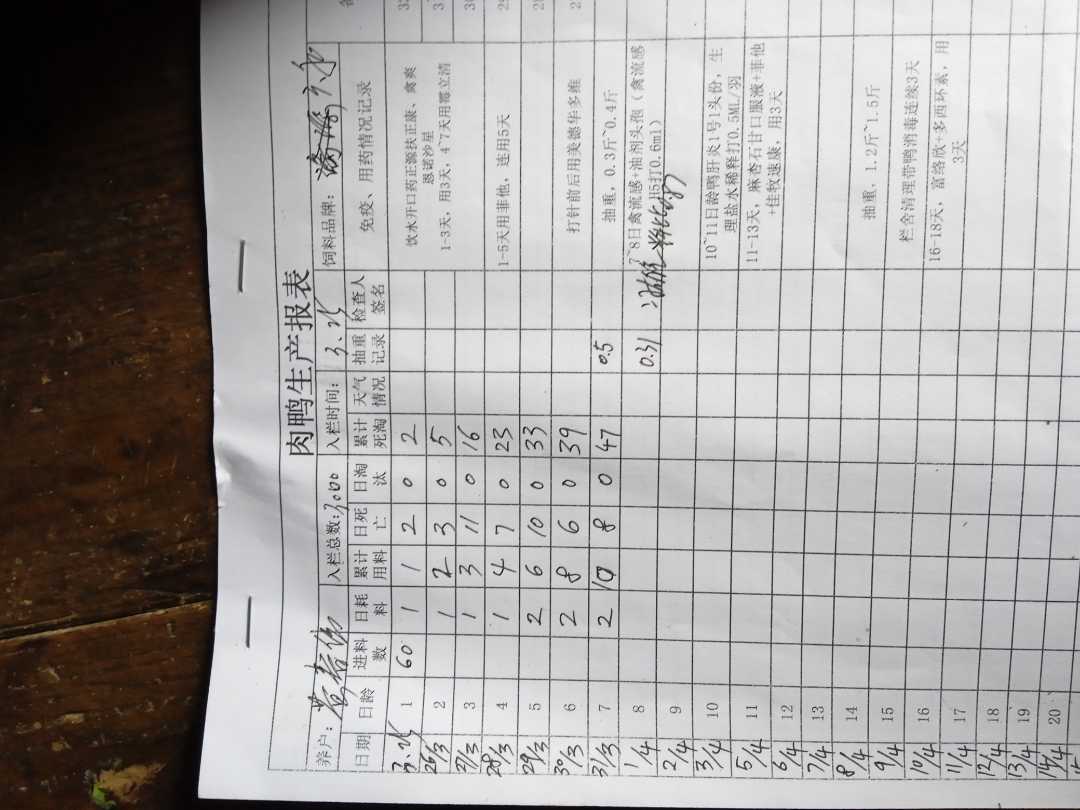 肉鸭生产报表
养户: 入栏总数:3000 入栏时间: 3.25 饲料品牌:
日期 日龄 进料数 日耗料 累计用料 日死亡 日淘汰 累计死淘 天气情况 抽重记录 检查人签名 免疫、用药情况记录
3.25 1 60 1 1 2 0 2 饮水开口药正源扶正康、禽爽
恩诺沙星
26/3 2 1 2 3 0 5 1-3天，用3天，4~7天用霉立清
27/3 3 1 3 11 0 16
28/3 4 1 4 7 0 23 1-5天用菲他，连用5天
29/3 5 2 6 10 0 33
30/3 6 2 8 6 0 39 打针前后用美德华多维
31/3 7 2 10 8 0 47 0.5 抽重，0.3斤~0.4斤
1/4 8 0.31 7~8日禽流感+油剂头孢（禽流感
H5打0.6ml）
2/4 9
3/4 10 10~11日龄鸭肝炎1号1头份，生
理盐水稀释打0.5ML/羽
5/4 11 11-13天，麻杏石甘口服液+菲他
+佳牧速康，用3天
6/4 12
7/4 13
8/4 14 抽重，1.2斤~1.5斤
9/4 15 栏舍清理带鸭消毒连续3天
10/4 16 16-18天，富络欣+多西环素，用
3天
11/4 17
12/4 18
13/4 19
14/4 20